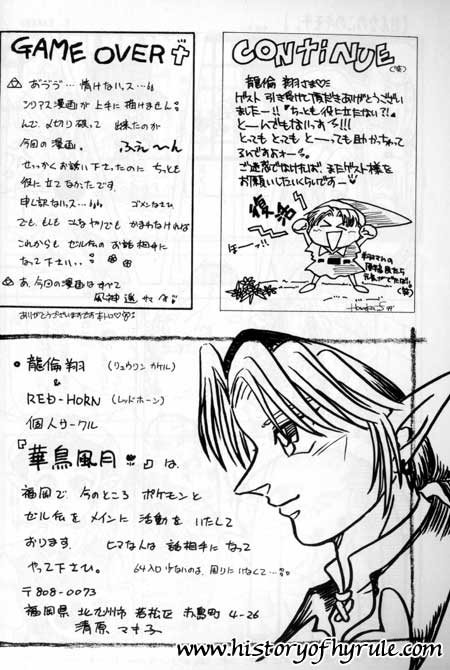 GAME OVER
おゔゔゔ… 情けないッス…
シリアス漫画が上手に描けません。
んで、〆切り破って 出来たのが
今回の漫画。 ふぇ〜ん
せっかくお誘い下さったのに ちっとも
役に立てなかったです。
申し訳ないッス… ゴメンなさひ
でも、もしも こんなヤツでも かまわなければ
これからも ゼル伝の お話相手に
なって下さい。
あ、今回の漫画はすべて
ありがとうございますです
CONTINUE
(笑)
龍倫 翔さま♡
ゲスト 引き受けて頂だきありがとうござい
ましたー!! 『ちっとも役に立たない?!』
とーんでもないっす!!!
とっても とっても とーっても助かっちゃって
るんですよォー。
ご迷惑でなければ、またゲスト様を
お願いしたいくらいですー♡
復活
ほーっ!!
(笑)
・龍倫 翔 (リュウリン カケル)
&
RED-HORN (レッドホーン)
個人サークル
『華鳥風月』は、
福岡で 今のところ ポケモンと
ゼル伝を メインに 活動を いたして
おります。 ヒマな人は 話相手に なって
やって下さひ。 64人口少ないのよ、周りに いなくて…
〒808-0073
福岡県 北九州市 若松区 赤島町 4-26
清原 マキ子
www.historyofhyrule.com